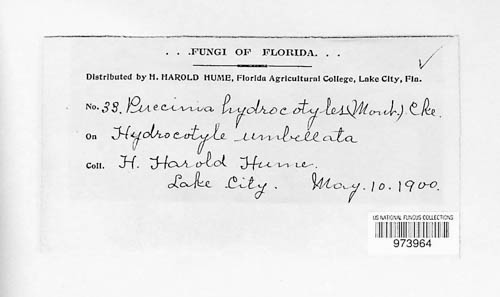 . . .FUNGI OF FLORIDA. . .
Distributed by H. HAROLD HUME, Florida Agricultural College, Lake City, Fla.
No. 38. Puccinia hydrocotyles (Mont.) Cke.
On Hydrocotyle umbellata
Coll. H. Harold Hume.
Lake City. May. 10. 1900.
US NATIONAL FUNGUS COLLECTIONS
973964